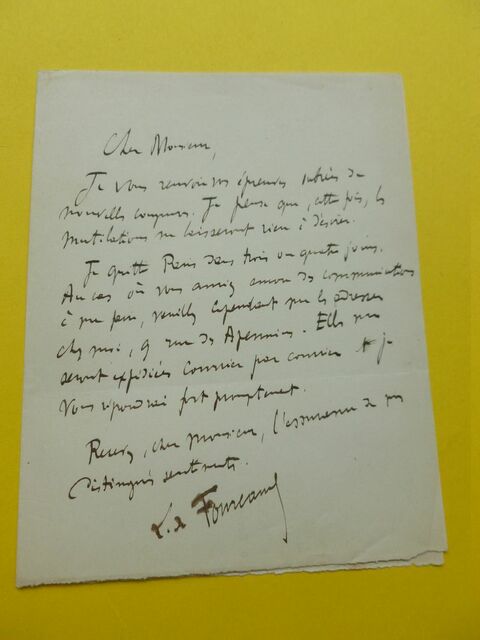 Cher Monsieur,
Je vous renvoie vos épreuves subies de
nouvelles coupures. Je pense que, cette fois, les
mutilations ne laisseront rien à désirer.
Je quitte Paris dans trois ou quatre jours.
Au cas où vous auriez encore des communications
à me faire, veuillez cependant me les adresser
chez moi, 9 rue des Apennins. Elles me
seront expédiées courrier par courrier et je
vous répondrai fort promptement.
Recevez, cher monsieur, l'assurance de mes
distingués sentiments.
L. de Fourcaud